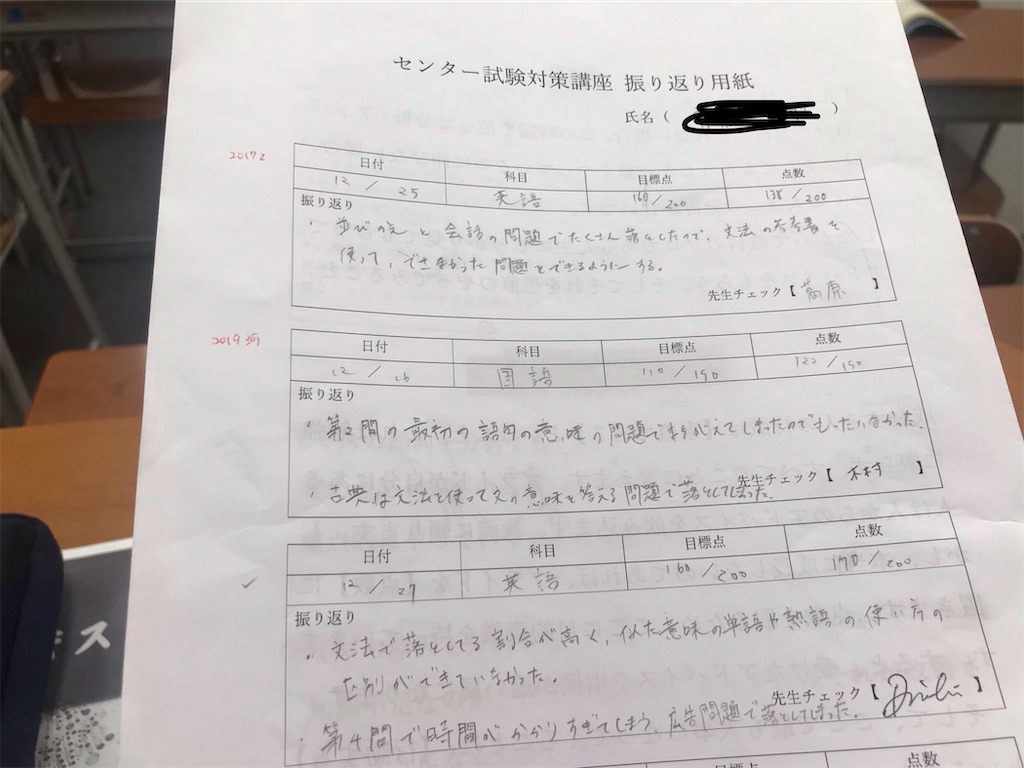 センター試験対策講座 振り返り用紙
氏名（ ）
2017 2
日付 科目 目標点 点数
12 / 25 英語 160 / 200 138 / 200
振り返り
・並びかえと会話の問題でたくさん落としたので、文法の参考書を
使って、できなかった問題をできるようにする。
先生チェック【 】
2019 河
日付 科目 目標点 点数
12 / 26 国語 110 / 150 122 / 150
振り返り
・第2問の最初の語句の意味の問題でまちがえてしまったのでもったいなかった。
先生チェック【 木村 】
・古典は文法を使って文の意味を答える問題で落としてしまった。
日付 科目 目標点 点数
12 / 27 英語 160 / 200 170 / 200
振り返り
・文法で落としてる割合が高く、似た意味の単語や熟語の使い方の
区別ができていなかった。
先生チェック【 】
・第4問で時間がかかりすぎてしまう。広告問題で落としてしまった。
日付 科目 目標点 点数